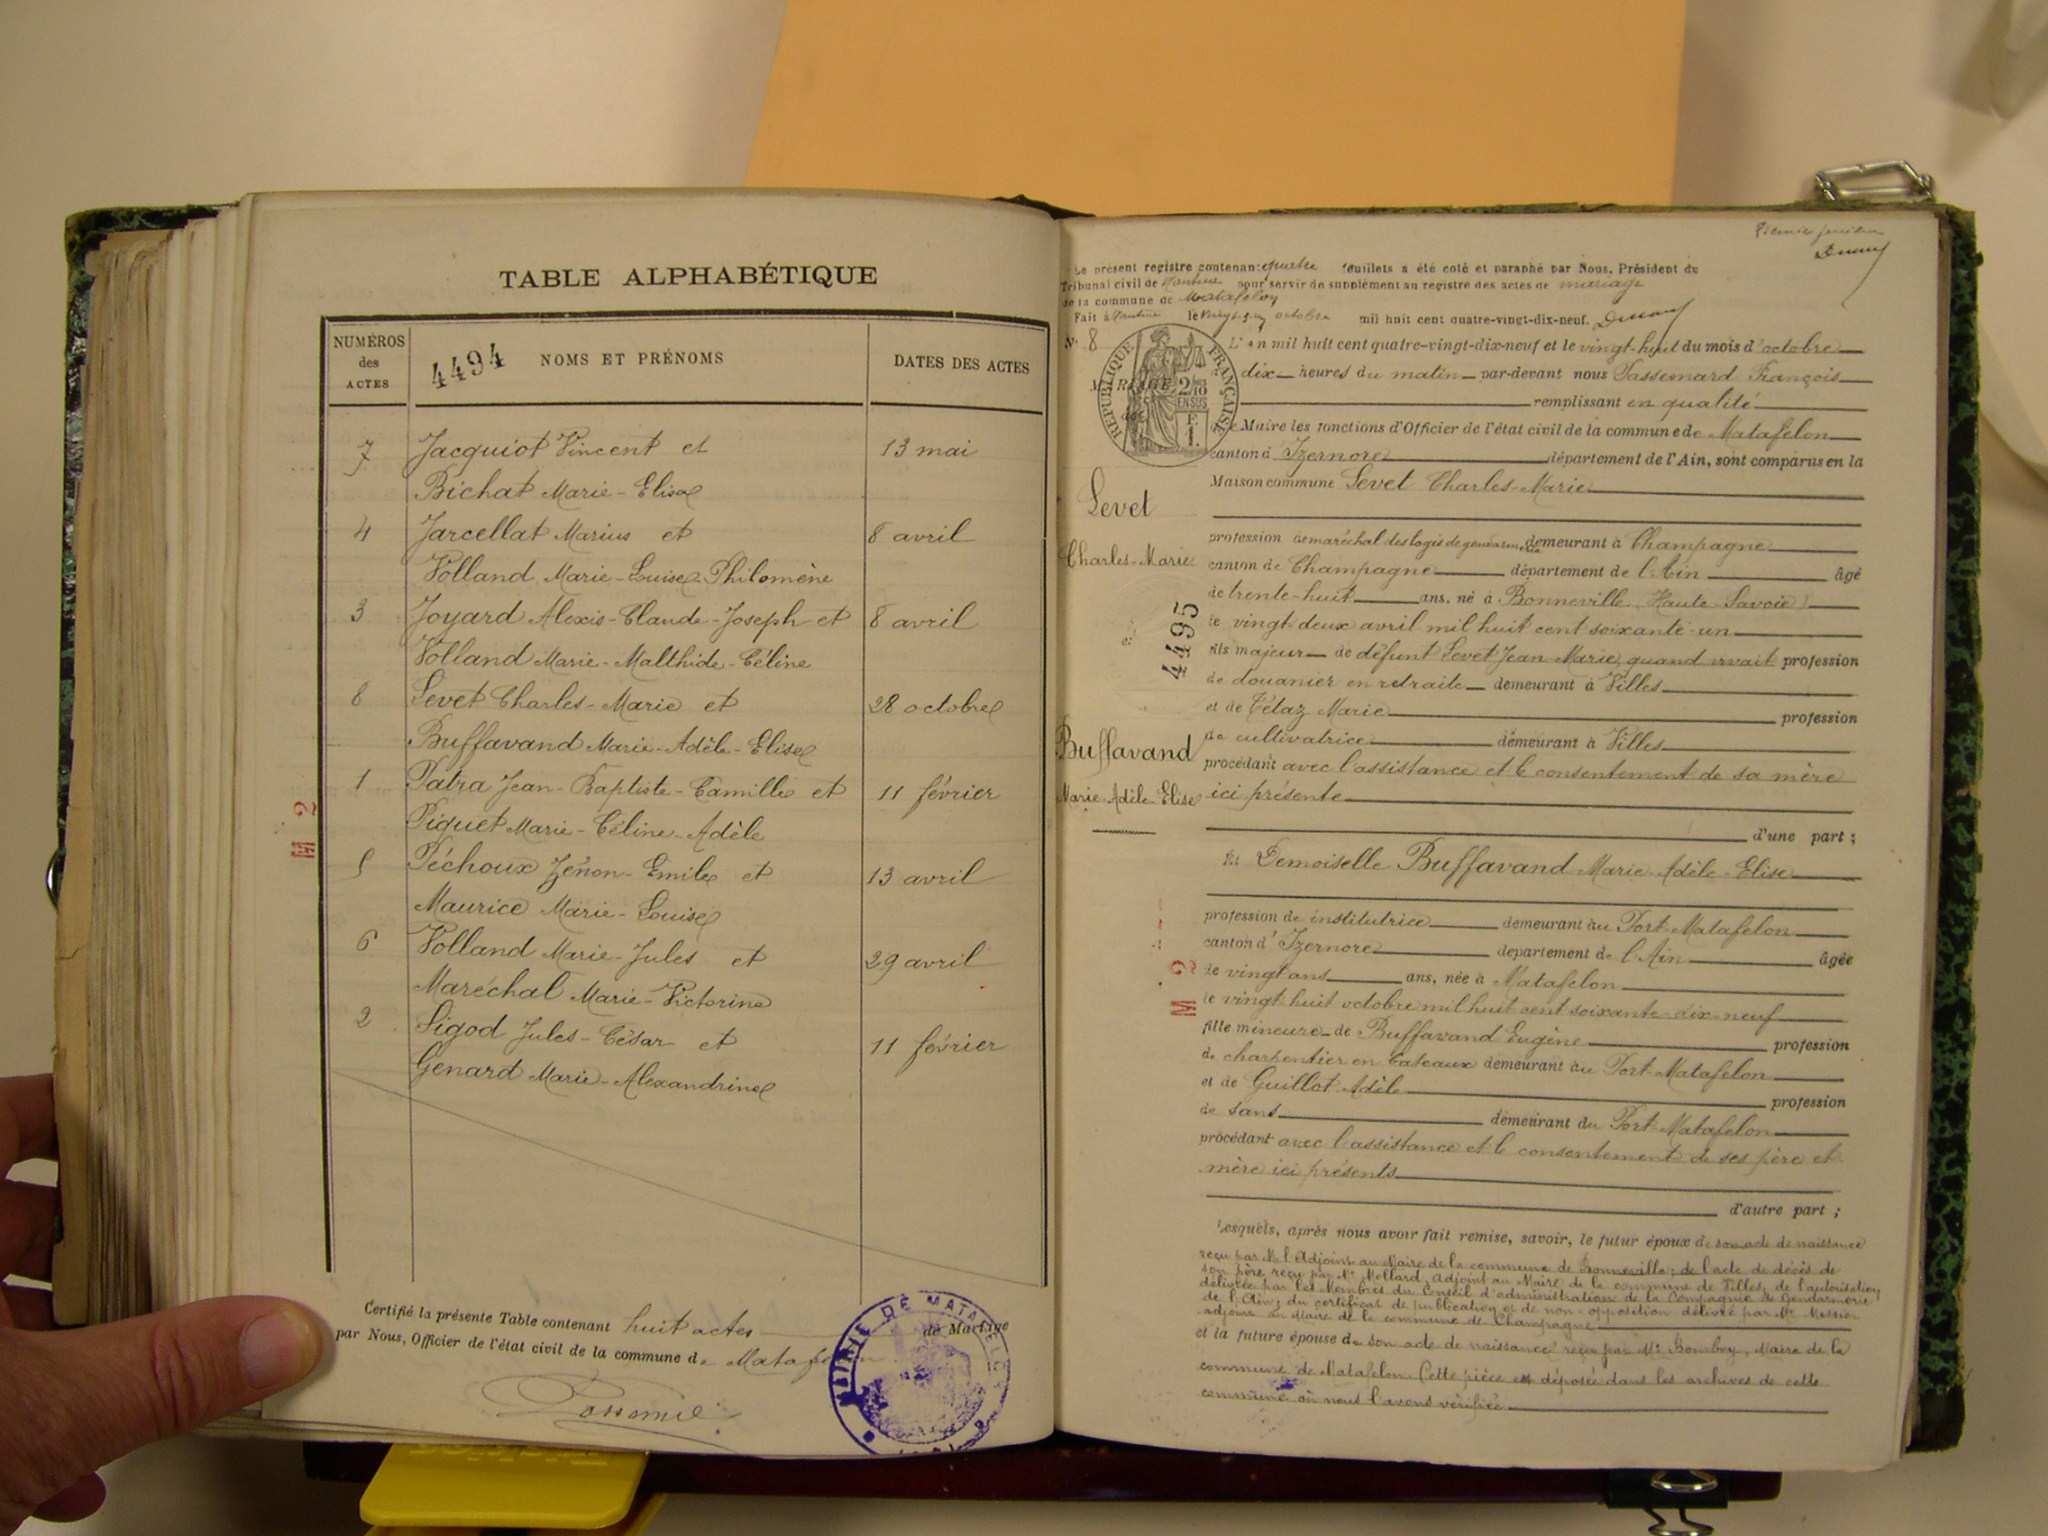 TABLE ALPHABÉTIQUE
NUMÉROS des ACTES
4494
NOMS ET PRÉNOMS
DATES DES ACTES
7 Jacquiot Vincent et 13 mai
Bichat Marie-Elisa
4 Jarcellat Marius et 8 avril
Volland Marie-Louise-Philomène
3 Joyard Alexis-Claude-Joseph et 8 avril
Volland Marie-Malthide-Céline
8 Levet Charles-Marie et 28 octobre
Buffavand Marie-Adèle-Elise
1 Patra Jean-Baptiste-Camille et 11 février
Piquet Marie-Céline-Adèle
5 Péchoux Zénon-Emile et 13 avril
Maurice Marie-Louise
6 Volland Marie-Jules et 29 avril
Maréchal Marie-Victorine
2 Sigod Jules-César et 11 février
Genard Marie-Alexandrine
M 2
Certifié la présente Table contenant huit actes de Mariage
par Nous, Officier de l'état civil de la commune de Matafelon
MAIRIE DE MATAFELON
Premier
Le présent registre contenant quatre feuillets a été coté et paraphé par Nous, Président du
Tribunal civil de Nantua pour servir de supplément au registre des actes de mariage
de la commune de Matafelon
Fait à Nantua le vingt-cinq octobre mil huit cent quatre-vingt-dix-neuf.
N° 8
RÉPUBLIQUE FRANÇAISE
2/10 EN SUS
F. 1.
MARIAGE
de
L'an mil huit cent quatre-vingt-dix-neuf et le vingt-huit du mois d'octobre
dix heures du matin par-devant nous Passemard François
remplissant en qualité
de Maire les fonctions d'Officier de l'état civil de la commune de Matafelon
canton d'Izernore département de l'Ain, sont comparus en la
Maison commune Levet Charles-Marie
Levet
Charles-Marie
profession de maréchal des logis de gendarmerie demeurant à Champagne
canton de Champagne département de l'Ain âgé
de trente-huit ans, né à Bonneville (Haute-Savoie)
le vingt-deux avril mil huit cent soixante-un
et
4495
fils majeur de défunt Levet Jean Marie, quand vivait profession
de douanier en retraite demeurant à Villes
et de Tétaz Marie profession
de cultivatrice demeurant à Villes
Buffavand
Marie-Adèle-Elise
procédant avec l'assistance et le consentement de sa mère
ici présente
d'une part ;
Et Demoiselle Buffavand Marie-Adèle-Elise
profession de institutrice demeurant au Port-Matafelon
canton d'Izernore département de l'Ain âgée
de vingt ans ans, née à Matafelon
le vingt-huit octobre mil huit cent soixante-dix-neuf
M 2
fille mineure de Buffavand Eugène profession
de charpentier en bateaux demeurant au Port-Matafelon
et de Guillot Adèle profession
de sans demeurant au Port-Matafelon
procédant avec l'assistance et le consentement de ses père et
mère ici présents
d'autre part ;
Lesquels, après nous avoir fait remise, savoir, le futur époux de son acte de naissance
reçu par M. l'Adjoint au Maire de la commune de Bonneville ; de l'acte de décès de
son père reçu par Mr Mollard, adjoint au Maire de la commune de Villes, de l'autorisation
délivrée par les Membres du Conseil d'administration de la Compagnie de Gendarmerie
de l'Ain ; du certificat de publication et de non-opposition délivré par Mr
adjoint au Maire de la commune de Champagne
et la future épouse de son acte de naissance reçu par Mr, Maire de la
commune de Matafelon. Cette pièce est déposée dans les archives de cette
commune où nous l'avons vérifiée